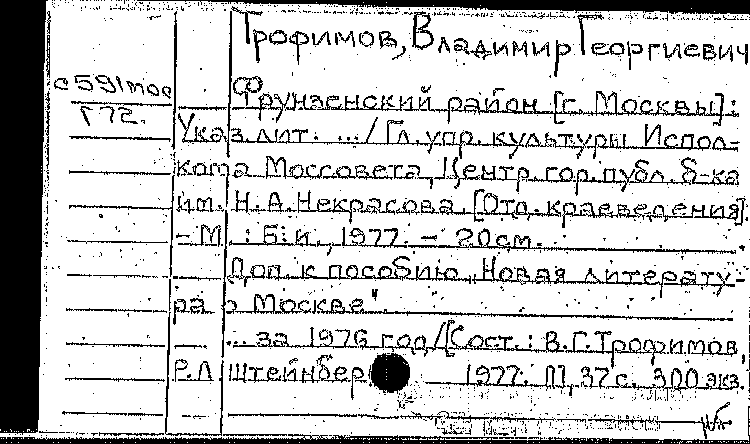 Трофимов, Владимир Георгиевич
с591мос
Фрунзенский район [г. Москвы]:
Г72.
Указ. лит. .../ Гл. упр. культуры Испол-
кома Моссовета, Центр. гор. публ. б-ка
им. Н.А. Некрасова. [Отд. краеведения].
- М.: Б. и., 1977. - 20 см.
Доп. к пособию „Новая литерату-
ра о Москве".
... за 1976 год / [Сост.: В.Г. Трофимов,
Р.Л. Штейнбер 1977. П, 37 с. 300 экз.